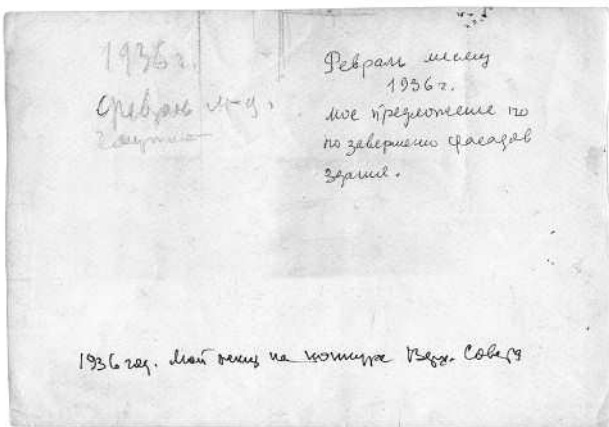 1936 г.
февраль м-ц.
Февраль месяц
1936 г.
мое предложение по
по завершению фасадов
здания.
1936 год. Мой эскиз на конкурс Верх. Совета